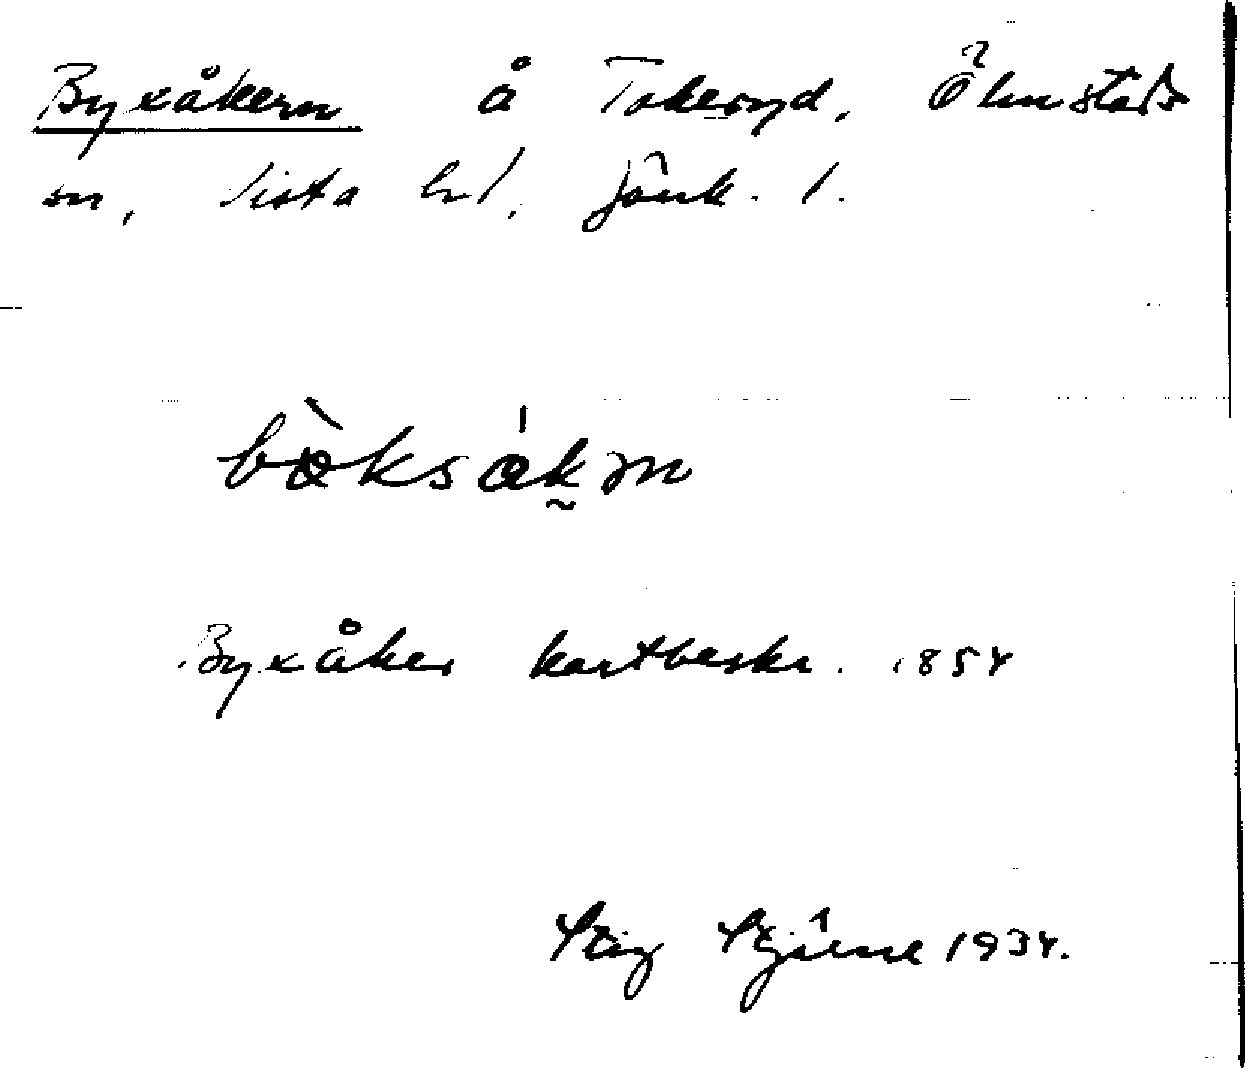 Byxåkern å Tokeryd, Ölmstads
sn, Vista hd, Jönk. l.
bòksåkən
Byxåker kartbeskr. 1854
Stig 1934.